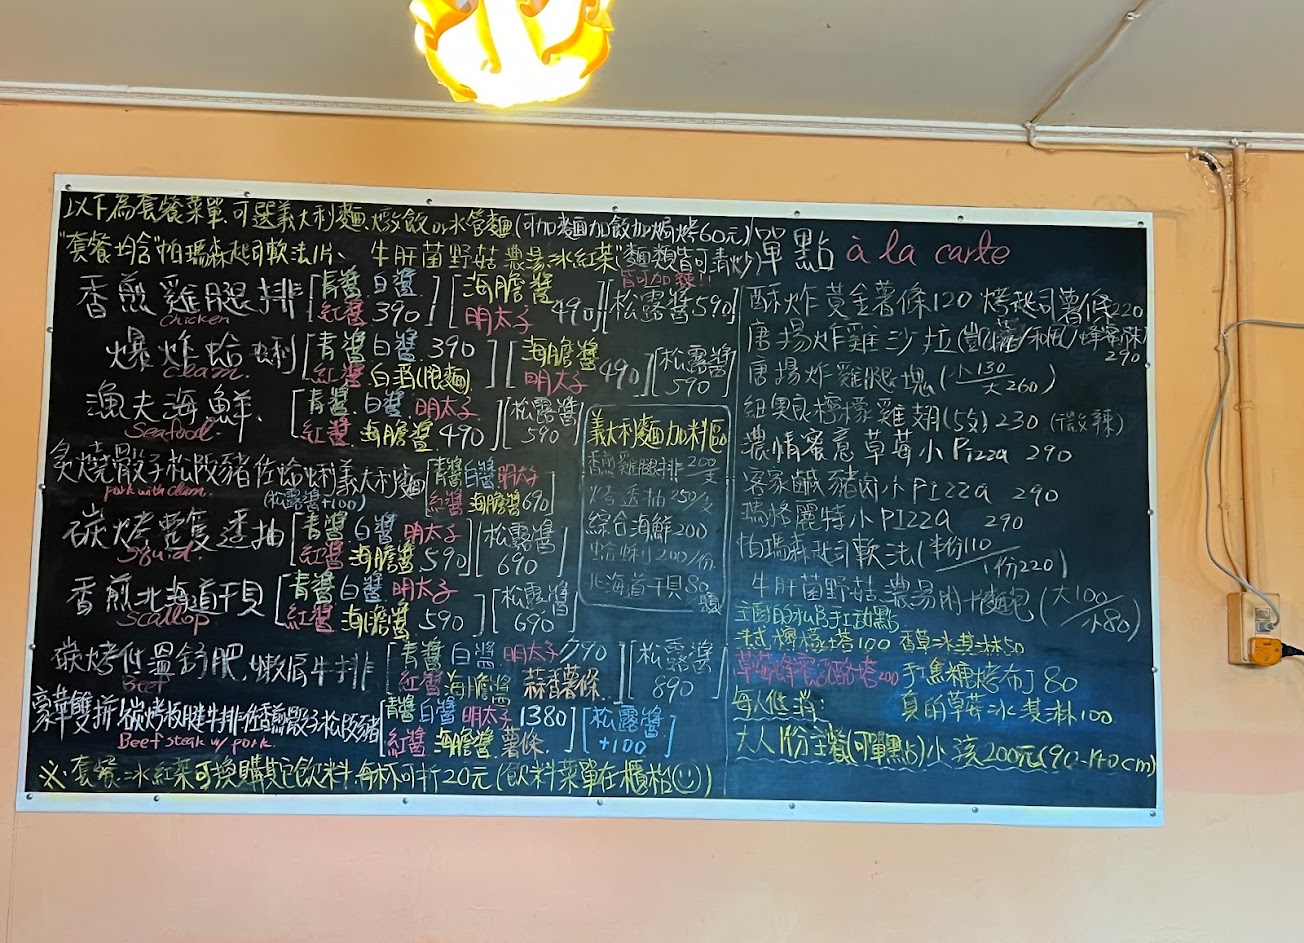 以下為套餐菜單.可選義大利麵.燉飯or水管麵(可加麵加飯加焗烤60元)
"套餐均含"帕瑪森起司軟法1片、牛肝菌野菇濃湯.冰紅茶"(麵類皆可清炒)
皆可加辣!!
香煎雞腿排 [青醬.白醬.紅醬390] [海膽醬 明太子490] [松露醬590]
chicken
爆炸蛤蜊 [青醬白醬.390 紅醬 白酒(限麵)] [海膽醬 明太子490] [松露醬590]
clam.
漁夫海鮮. [青醬.白醬.明太子 紅醬 海膽醬490] [松露醬590]
Seafood.
炙燒骰子松阪豬佐蛤蜊義大利麵 [青醬白醬明太子 紅醬 海膽醬690]
pork with clam. (松露醬+100)
碳烤整隻透抽 [青醬白醬明太子 紅醬 海膽醬590] [松露醬690]
Squid
香煎北海道干貝 [青醬白醬明太子 紅醬 海膽醬590] [松露醬690]
Scallop
碳烤低溫舒肥.嫩肩牛排 [青醬白醬明太子790 紅醬海膽醬 蒜香薯條] [松露醬890]
Beef
豪華雙拼!碳烤板腱牛排佐香煎骰子松阪豬 [青醬白醬明太子1380 紅醬 海膽醬 薯條] [松露醬+100]
Beef steak w/ pork.
※.套餐.冰紅茶可換購其它飲料.每杯可折20元(飲料菜單在櫃枱☺)
義大利麵加料區
香煎雞腿排200/支
烤透抽250/隻
綜合海鮮200
蛤蜊200/份
北海道干貝80/顆
單點 à la carte
酥炸黃金薯條120 烤起司薯條220
唐揚炸雞沙拉(凱薩/和風/蜂蜜芥末)290
唐揚炸雞腿塊(小130/大260)
紐奧良檸檬雞翅(5支)230(微辣)
濃情蜜意草莓小Pizza 290
客家鹹豬肉小PIZZA 290
瑪格麗特小PIZZA 290
帕瑪森起司軟法(半份110/1份220)
牛肝菌野菇濃湯附麵包(大100/小80)
法式檸檬塔100 香草冰淇淋50
手工焦糖烤布丁80
每人低消: 真的草莓冰淇淋100
大人1份主餐(可單點)小孩200元(90-140cm)